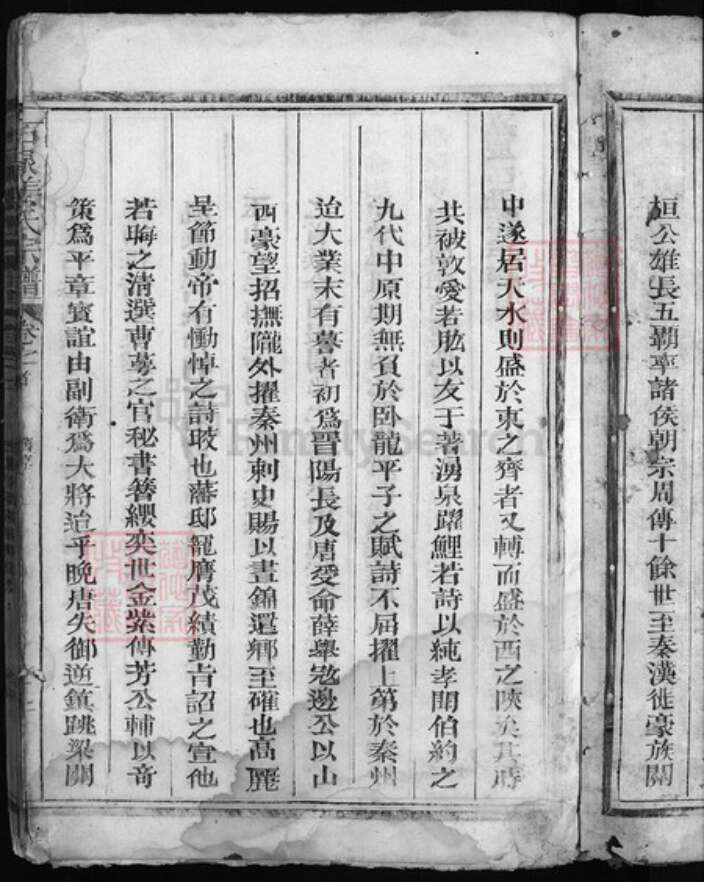 桓公雄長五覇率諸侯朝宗周傳十餘世至秦漢徙豪族關
中遂居天水則盛於東之齊者又轉而盛於西之陝矣其時
共被敦愛若肱以友于著湧泉躍鯉若詩以純孝聞伯約之
九代中原期無負於卧龍平子之賦詩不屈擢上第於秦州
迨大業末有謩者初爲晋陽長及唐受命薛舉寇邊公以山
西豪望招撫隴外擢秦州刺史賜以晝錦還鄉至確也高麗
呈節動帝有慟悼之詩晈也藩邸寵膺茂績勤吉詔之宣他
若晦之清選曹蕚之官秘書簪纓奕世金紫傳芳公輔以竒
策爲平章寳誼由副衛爲大將迨乎晚唐失御逆鎮跳梁關
氏宗譜
卷之首
FamilySearch